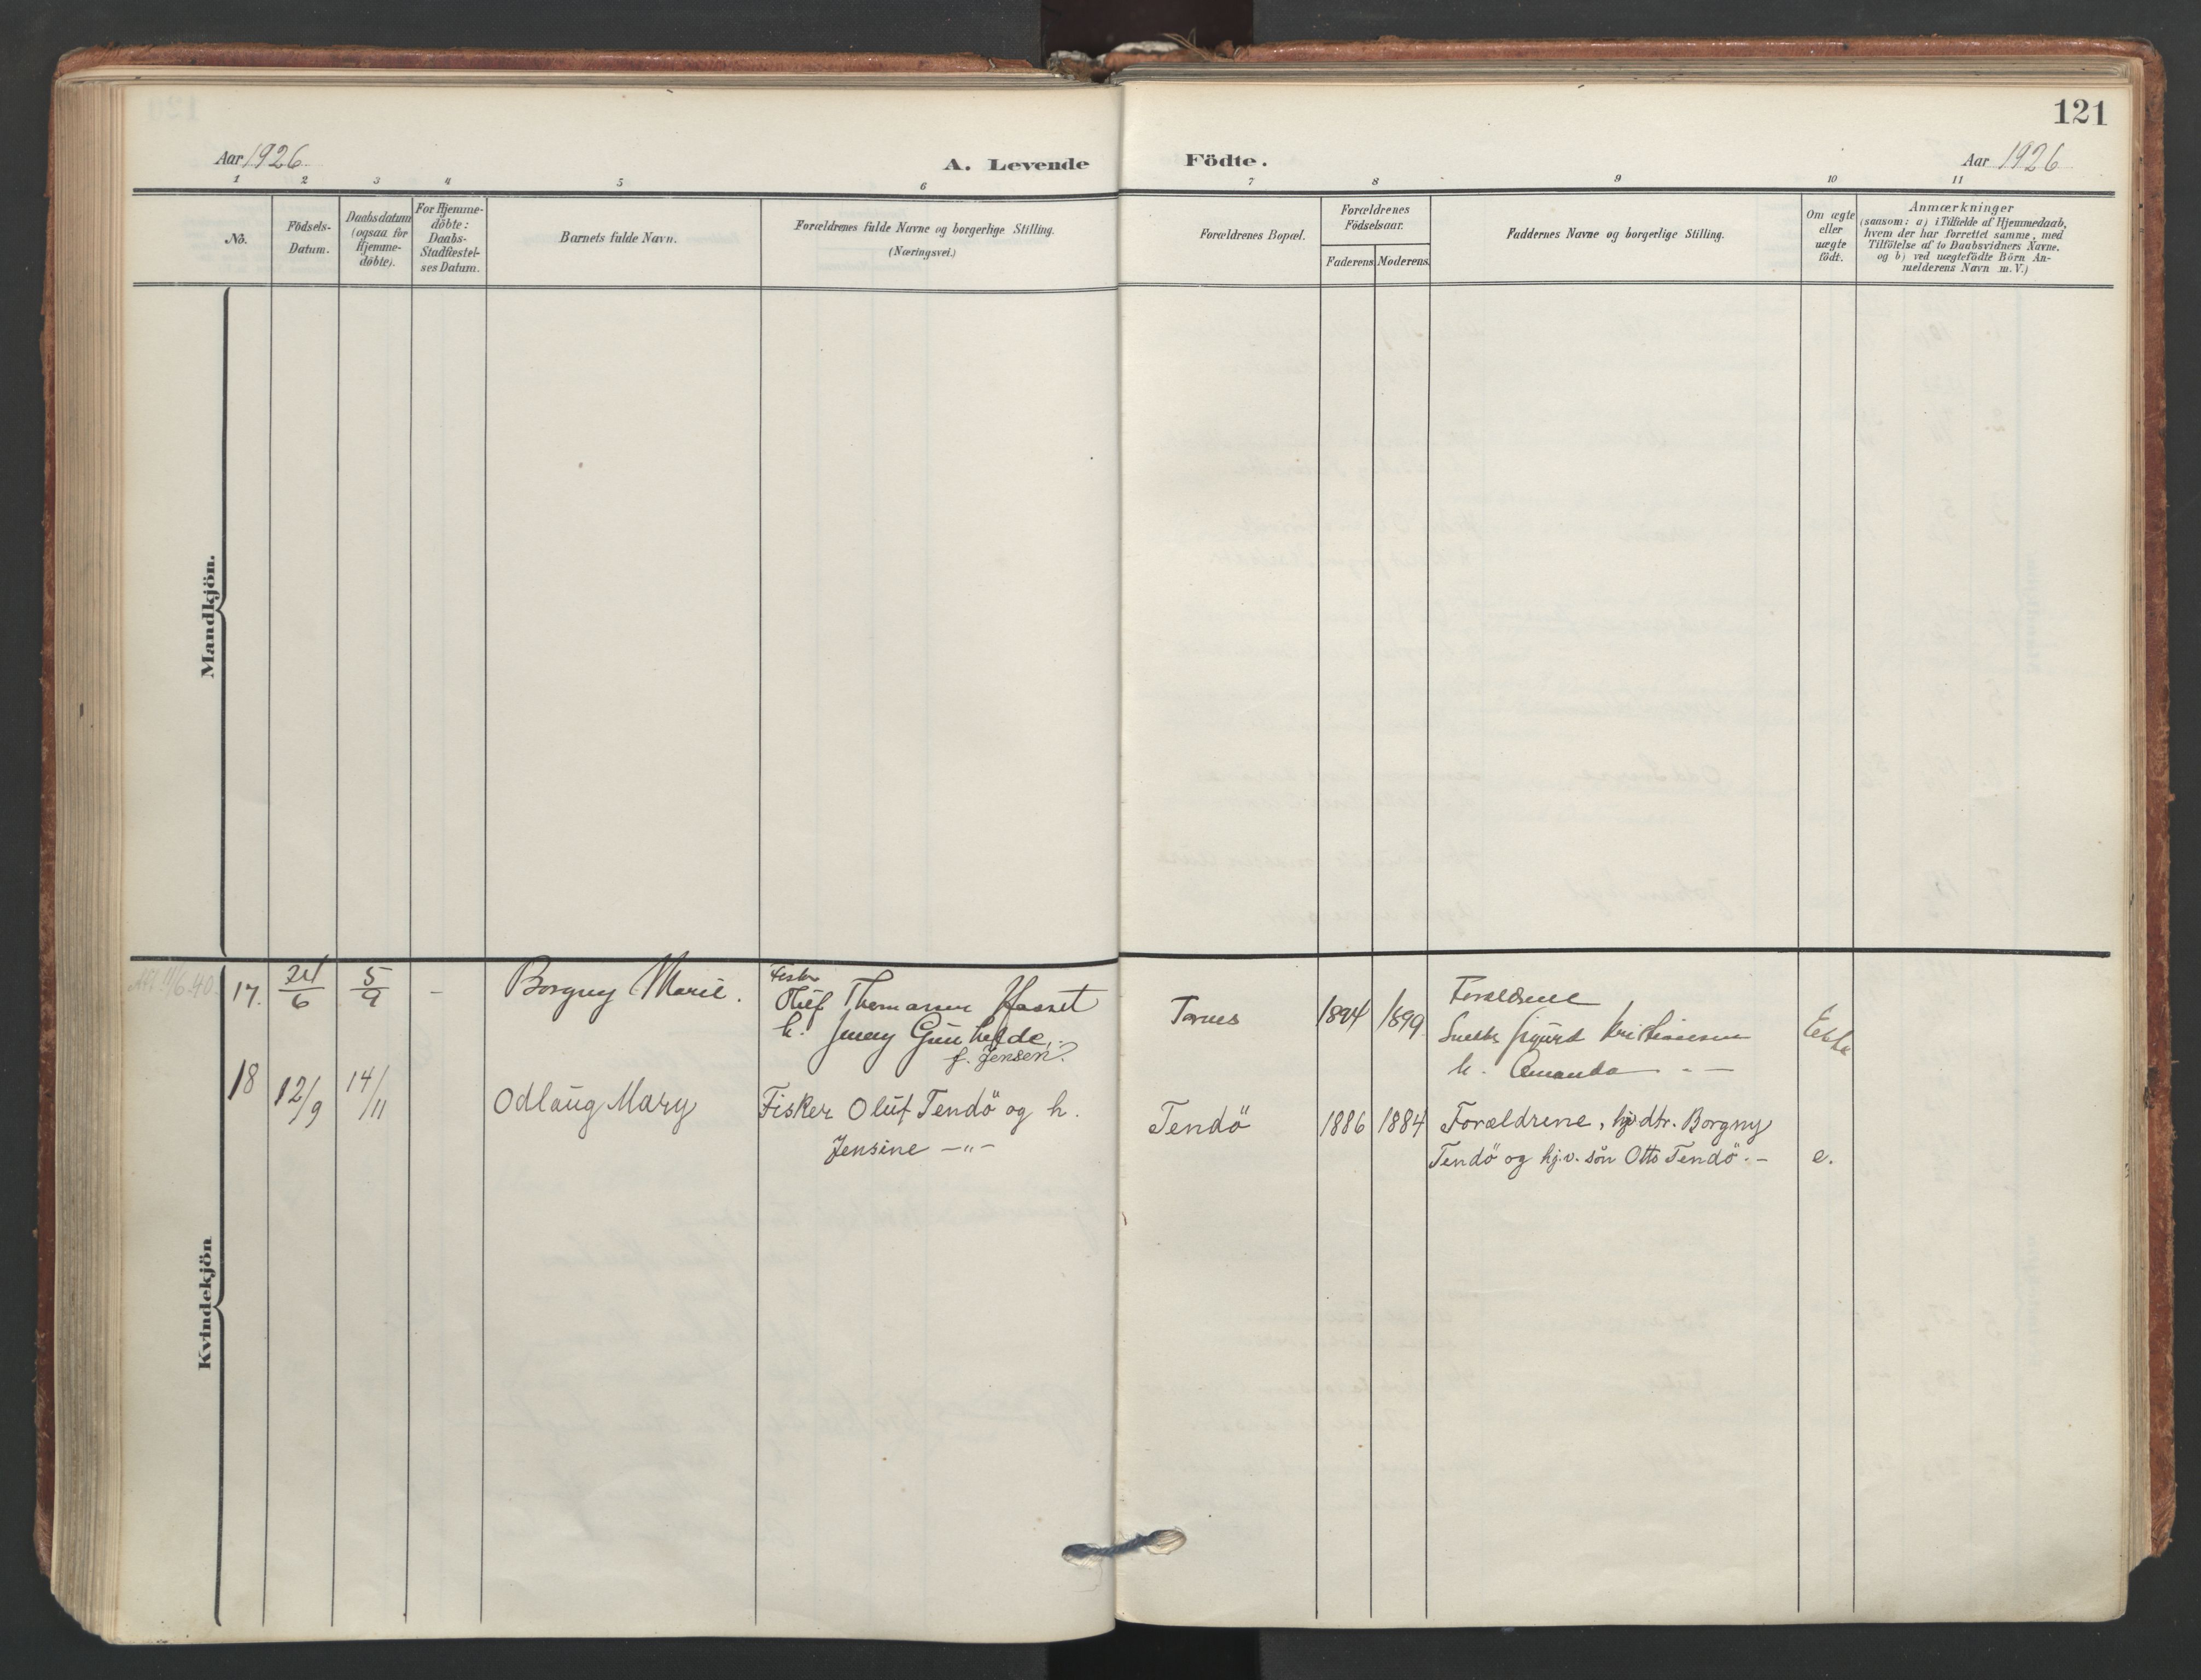 121
Aar 1926
A. Levende
Födte.
Aar 1926
1 2 3 4 5 6 7 8 9 10 11
No.
Födsels-
Datum.
Daabsdatum
(ogsaa for
Hjemme-
döbte).
For Hjemme-
döbte:
Daabs-
Stadfæstel-
ses Datum.
Barnets fulde Navn.
Forældrenes fulde Navne og borgerlige Stilling.
(Næringsvei.)
Forældrenes Bopæl.
Forældrenes
Födselsaar.
Faderens Moderens.
Faddernes Navne og borgerlige Stilling.
Om ægte
eller
uægte
födt.
Anmærkninger
(saasom: a) i Tilfælde af Hjemmedaab,
hvem der har forrettet samme, med
Tilföielse af to Daabsvidners Navne,
og b) ved uægtefödte Börn An-
melderens Navn m. V.)
Mandkjön.
17. 24/6 5/9 - Borgny Marie.
Fisker
Oluf Thomassen
h. Jenny Gunhilde,
f. Jensen.
Tornes 1894 1899
Forældrene
Sigurd Kristiansen
h. Amanda - " -
Ekte
18 12/9 14/11 Odlaug Mary
Fisker Oluf Tendö og h.
Jensine -"-
Tendö 1886 1884
Forældrene, hjv. dtr. Borgny
Tendö og hj.v. sön Otto Tendö. -
e.
Kvindekjön